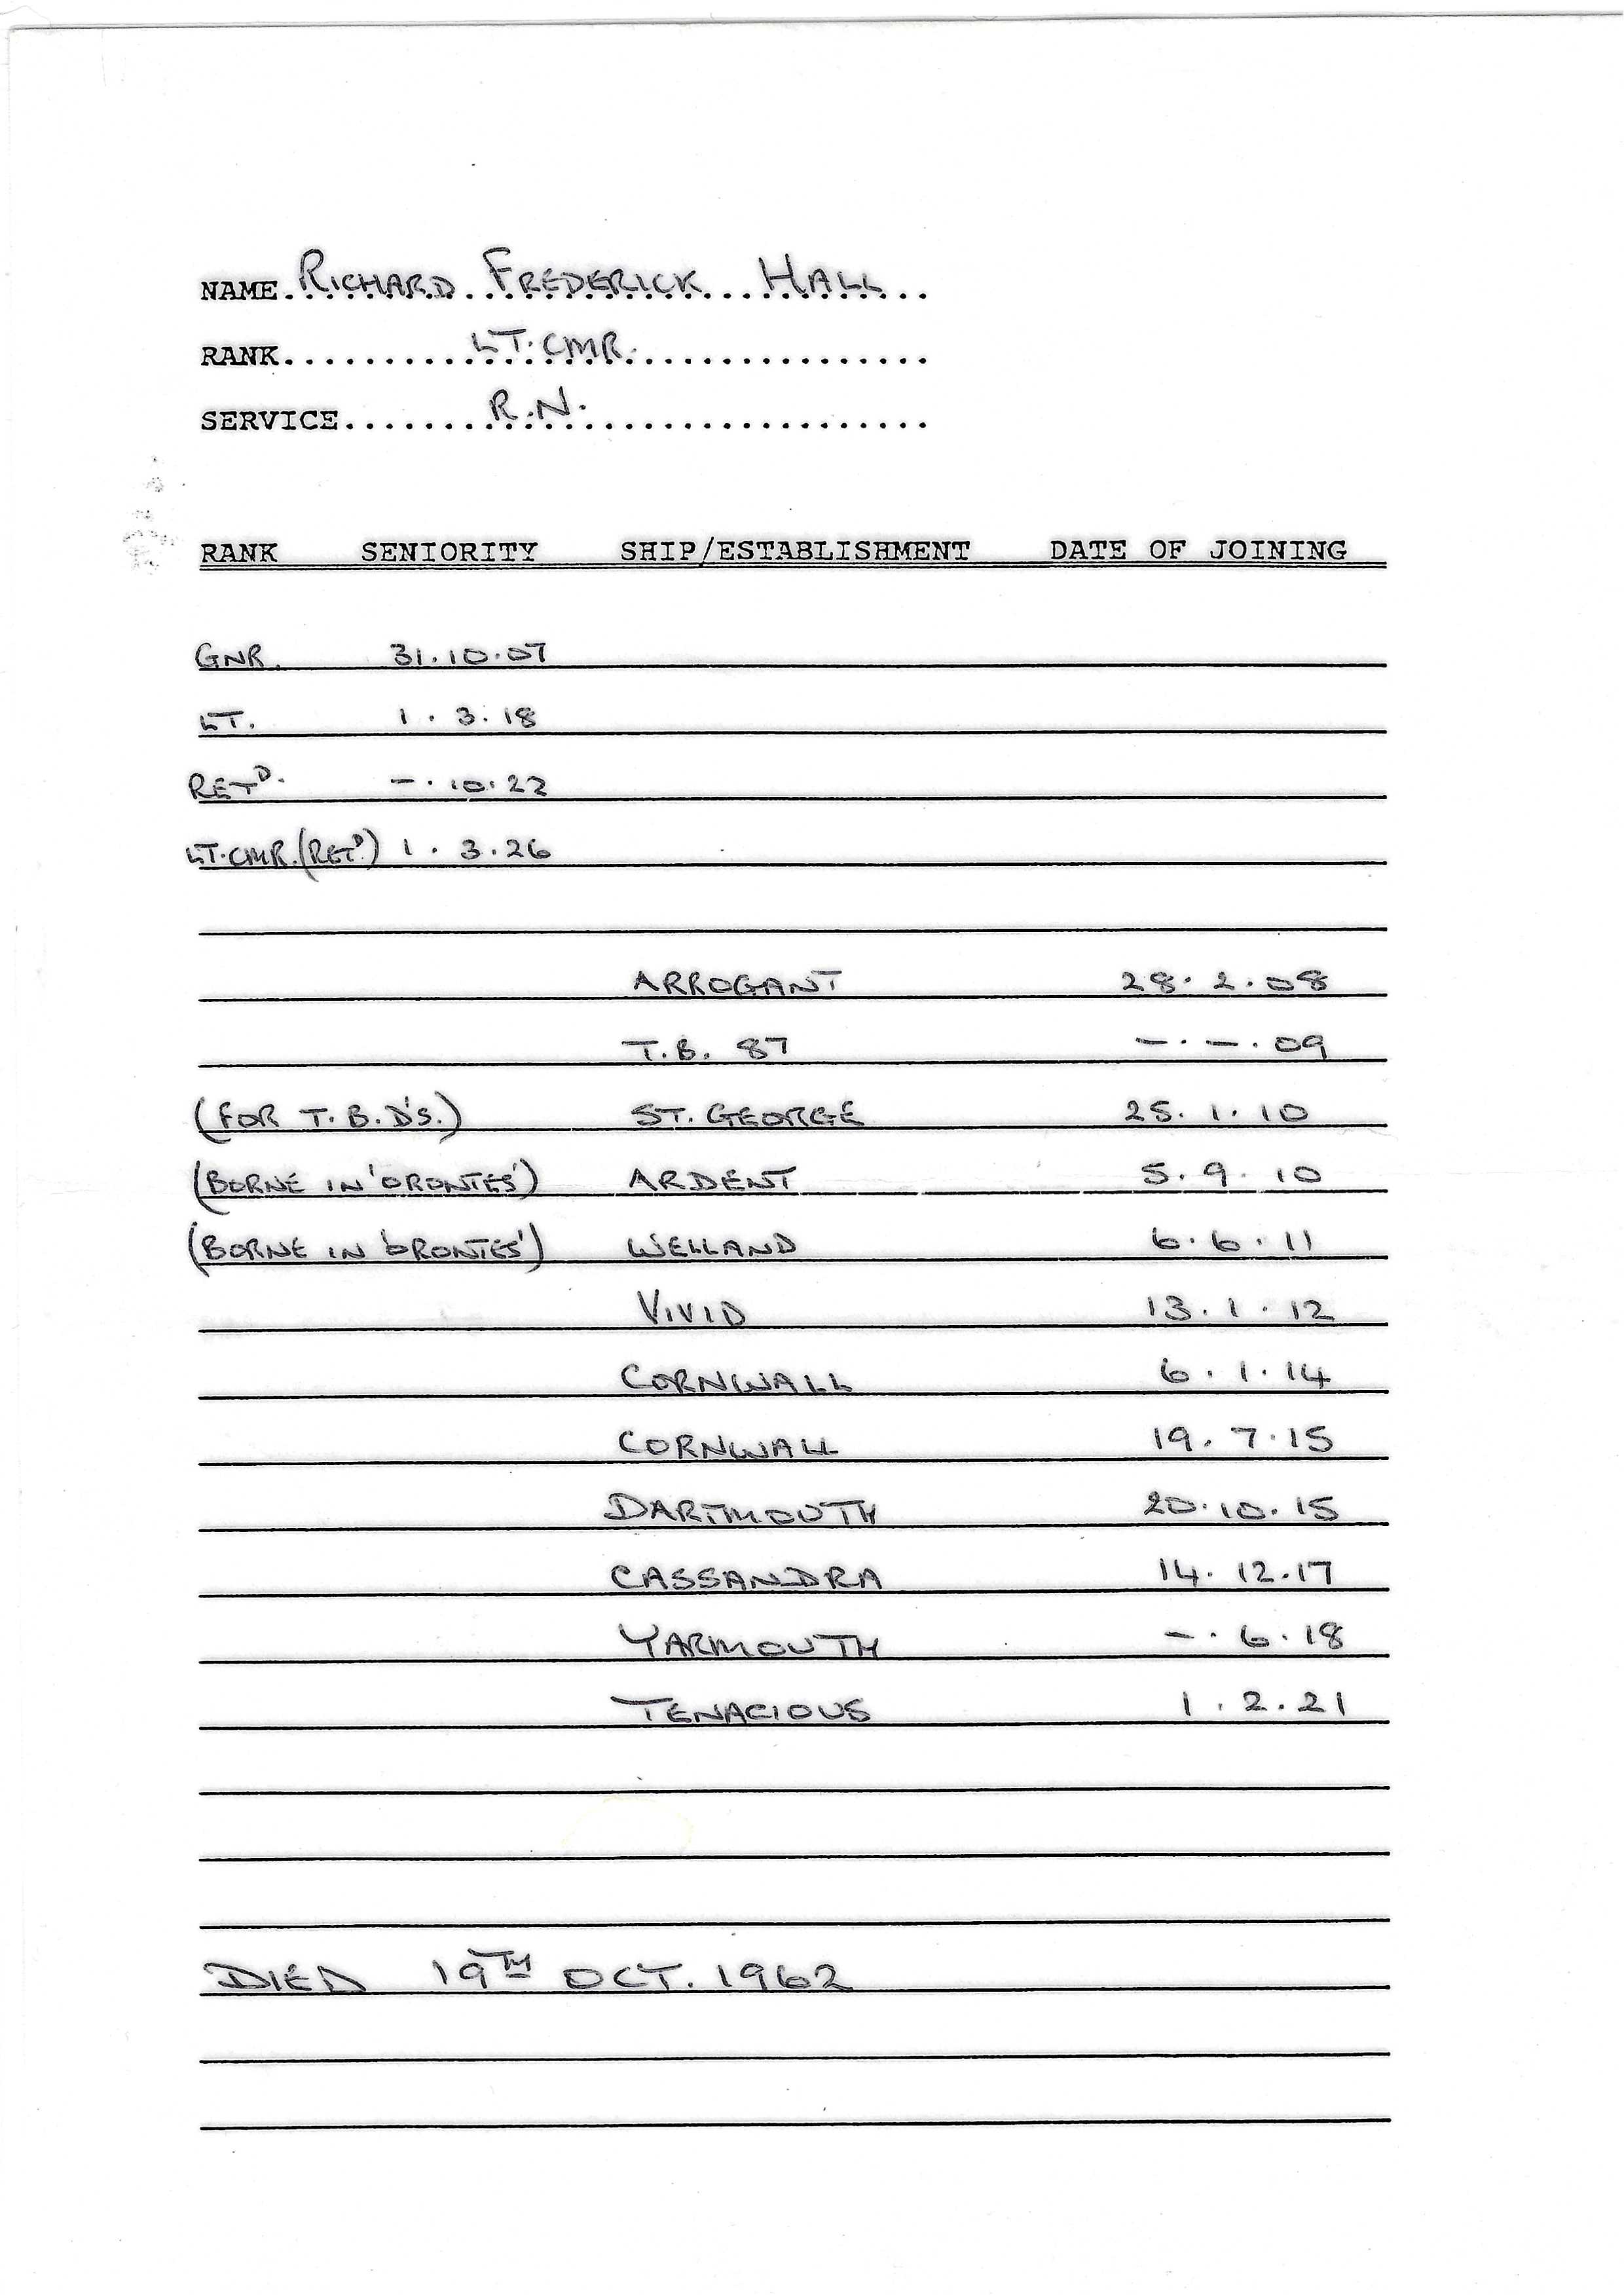 NAME. RICHARD FREDERICK HALL
RANK. LT. CMR.
SERVICE. R.N.
RANK SENIORITY SHIP/ESTABLISHMENT DATE OF JOINING
GNR. 31.10.07
LT. 1.3.18
RETD. -.10.22
LT.CMR.(RETD.) 1.3.26
ARROGANT 28.2.08
T.B. 87 -.-.09
(FOR T.B.D'S.) ST. GEORGE 25.1.10
(BORNE IN 'ORONTES') ARDENT 5.9.10
(BORNE IN 'ORONTES') WELLAND 6.6.11
VIVID 13.1.12
CORNWALL 6.1.14
CORNWALL 19.7.15
DARTMOUTH 20.10.15
CASSANDRA 14.12.17
YARMOUTH -.6.18
TENACIOUS 1.2.21
DIED 19TH OCT. 1962